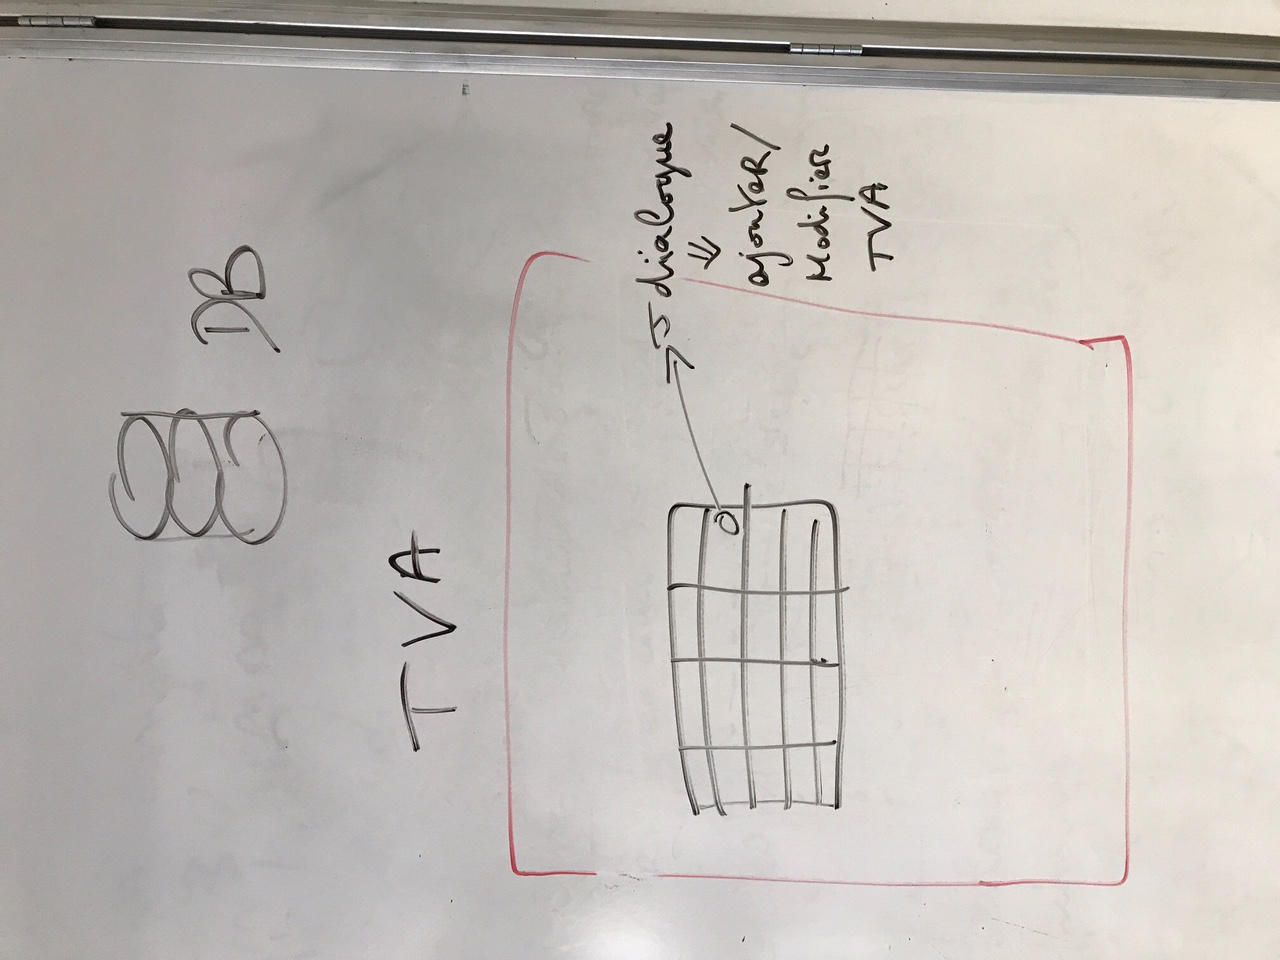 DB
TVA
dialogue
ajouter/
Modifier
TVA